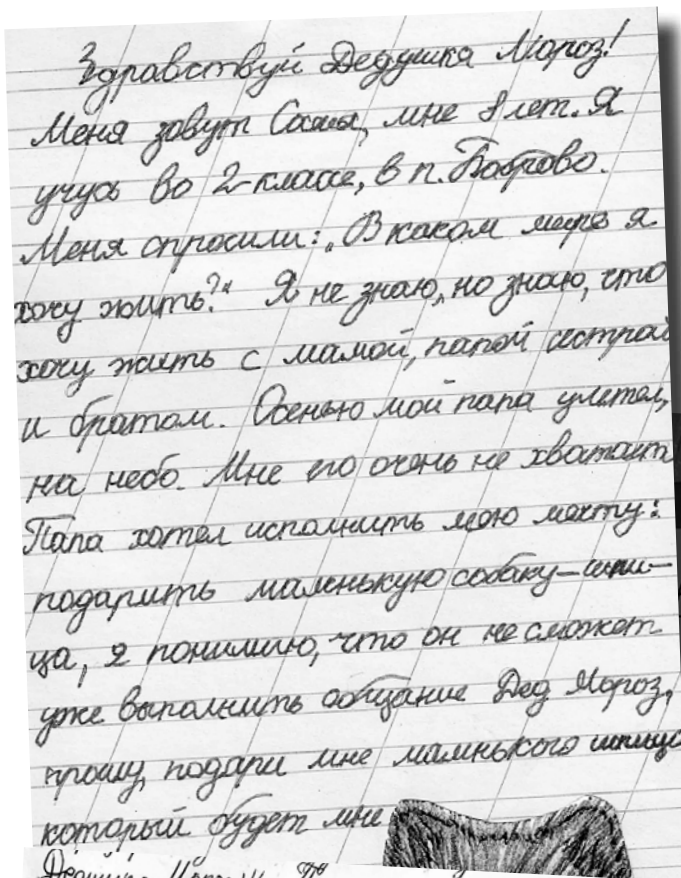 Здравствуй Дедушка Мороз!
Меня зовут Саша, мне 8 лет. Я
учусь во 2-классе, в п. Боброво.
Меня спросили: „В каком мире я
хочу жить?" Я не знаю, но знаю, что
хочу жить с мамой, папой сестрой
и братом. Осенью мой папа улетел,
на небо. Мне его очень не хватает
Папа хотел исполнить мою мечту:
подарить маленькую собаку-шпи-
ца, я понимаю, что он не сможет
уже выполнить обещание Дед Мороз,
прошу, подари мне маленького шпица
который будет мне